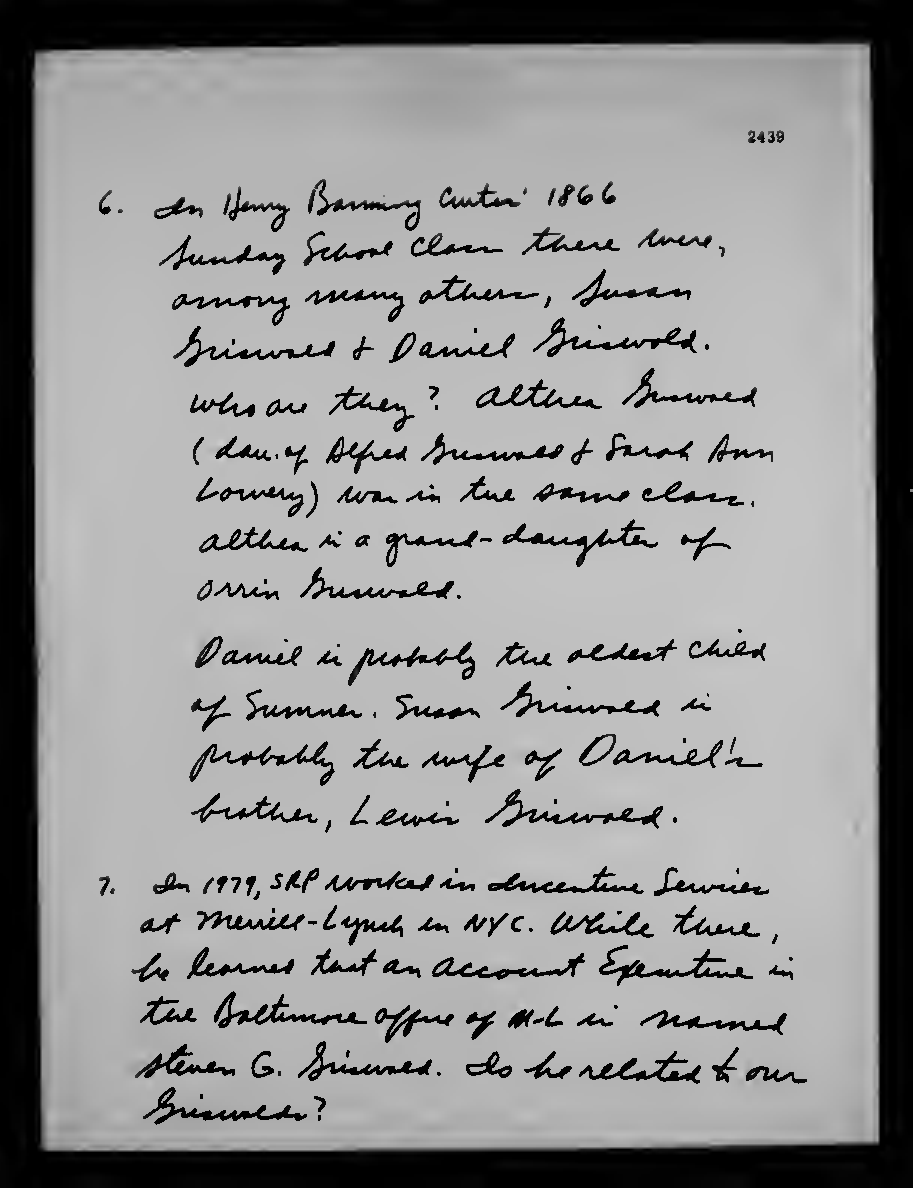 2439
6. In Henry Banning Curtis' 1866
Sunday School Class there were,
among many others, Susan
Griswold & Daniel Griswold.
Who are they? Althea Griswold
(dau. of Alfred Griswold & Sarah Ann
Lowery) was in the same class.
Althea is a grand-daughter of
Orrin Griswold.
Daniel is probably the oldest child
of Sumner. Susan Griswold is
probably the wife of Daniel's
brother, Lewis Griswold.
7. In 1979, SRP worked in Incentive Services
at Merrill-Lynch in NYC. While there,
he learned that an Account Executive in
the Baltimore office of M-L is named
Steven G. Griswold. Is he related to our
Griswolds?